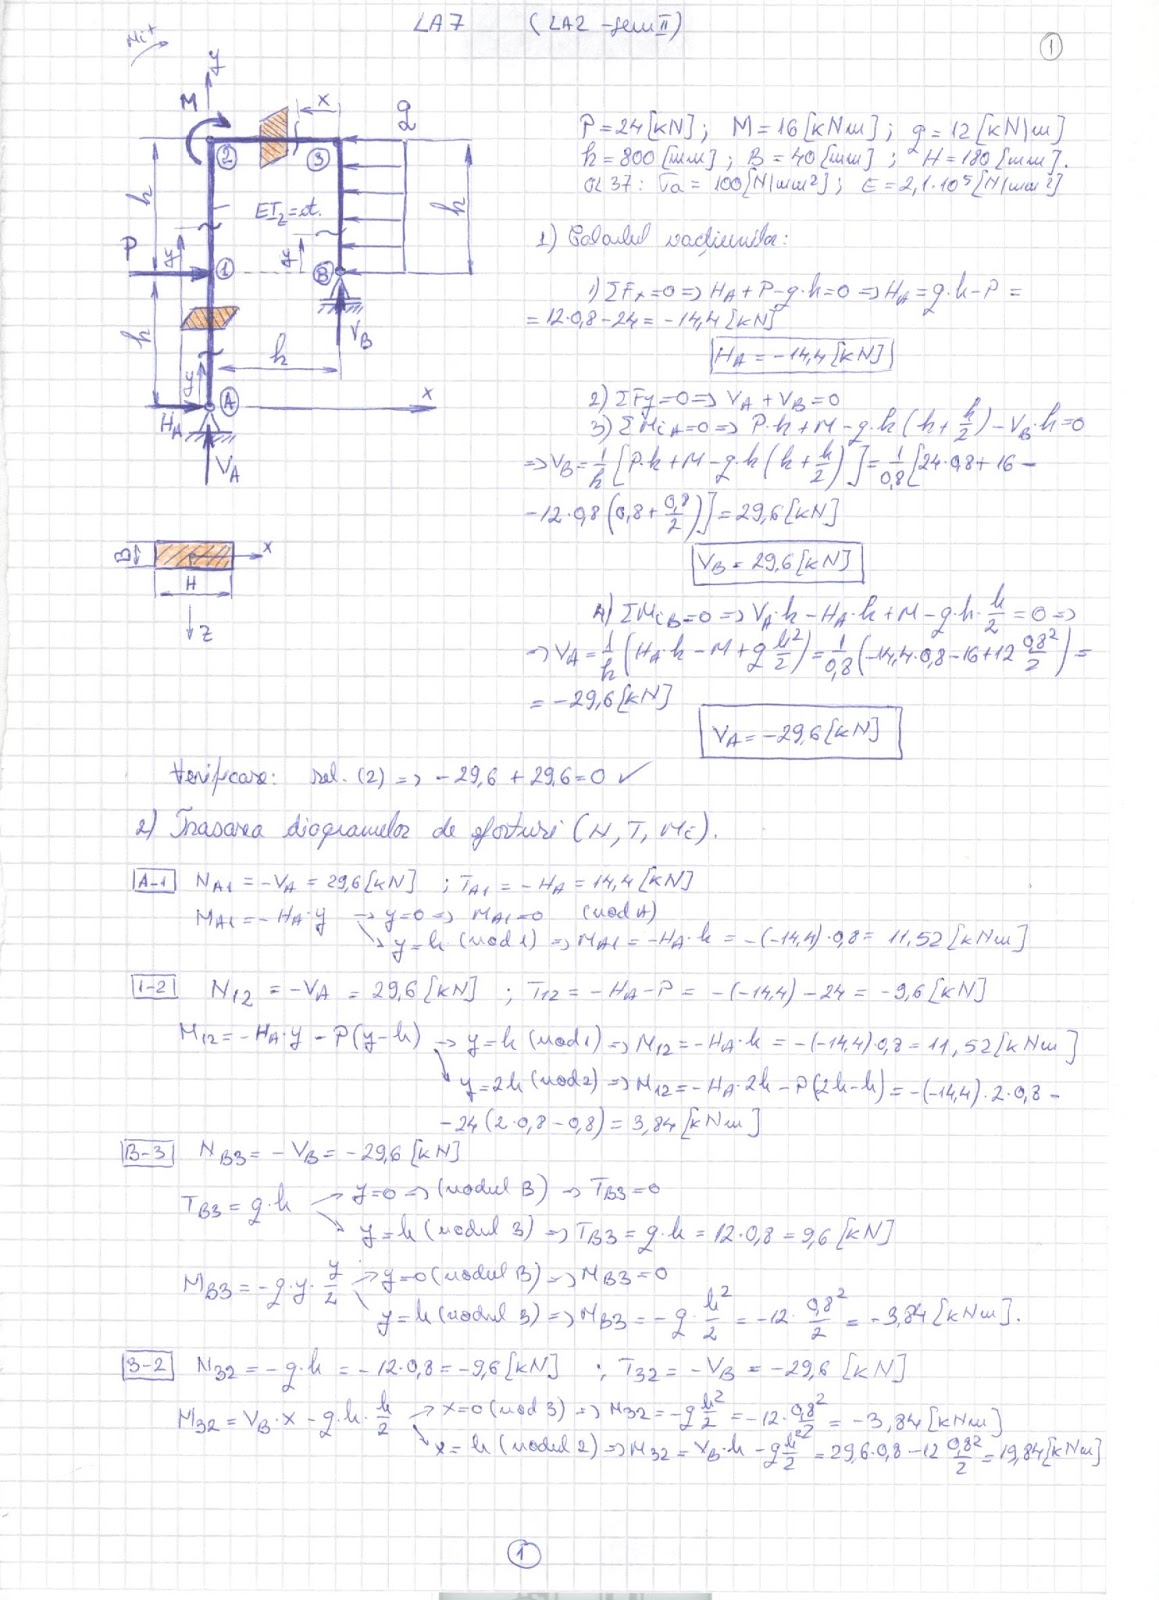 LA7 (LA2 - sem II)
1
Mi+
y
M
x
q
2
3
h
EIz=ct.
h
P
y
1
y
B
VB
h
h
y
A
x
HA
VA
B
x
H
z
P=24[kN]; M=16[kNm]; q=12[kN/m]
h=800[mm]; B=40[mm]; H=180[mm].
OL37: σa=100[N/mm²]; E=2,1·10⁵[N/mm²]
1) Calculul reacțiunilor:
1) ΣFx=0 => HA+P-q·h=0 => HA=q·h-P=
=12·0,8-24=-14,4[kN]
HA=-14,4[kN]
2) ΣFy=0 => VA+VB=0
3) ΣMiA=0 => P·h+M-q·h(h+h/2)-VB·h=0
=> VB=1/h[P·h+M-q·h(h+h/2)]=1/0,8[24·0,8+16-
-12·0,8(0,8+0,8/2)]=29,6[kN]
VB=29,6[kN]
4) ΣMiB=0 => VA·h-HA·h+M-q·h·h/2=0 =>
=> VA=1/h(HA·h-M+q h²/2)=1/0,8(-14,4·0,8-16+12 0,8²/2)=
=-29,6[kN]
VA=-29,6[kN]
Verificare: rel. (2) => -29,6+29,6=0 ✓
2) Trasarea diagramelor de eforturi (N, T, Mi).
A-1 NA1=-VA=29,6[kN] ; TA1=-HA=14,4[kN]
MA1=-HA·y → y=0 => MA1=0 (nod A)
↘ y=h (nod 1) => MA1=-HA·h=-(-14,4)·0,8=11,52[kNm]
1-2 N12=-VA=29,6[kN] ; T12=-HA-P=-(-14,4)-24=-9,6[kN]
M12=-HA·y-P(y-h) → y=h (nod 1) => M12=-HA·h=-(-14,4)·0,8=11,52[kNm]
↘ y=2h (nod 2) => M12=-HA·2h-P(2h-h)=-(-14,4)·2·0,8-
-24(2·0,8-0,8)=3,84[kNm]
B-3 NB3=-VB=-29,6[kN]
TB3=q·h → y=0 => (nodul B) => TB3=0
↘ y=h (nodul 3) => TB3=q·h=12·0,8=9,6[kN]
MB3=-q·y·y/2 → y=0 (nodul B) => MB3=0
↘ y=h (nodul 3) => MB3=-q·h²/2=-12·0,8²/2=-3,84[kNm].
3-2 N32=-q·h=-12·0,8=-9,6[kN] ; T32=-VB=-29,6[kN]
M32=VB·x-q·h·h/2 → x=0 (nod 3) => M32=-q h²/2=-12·0,8²/2=-3,84[kNm]
↘ x=h (nodul 2) => M32=VB·h-q h²/2=29,6·0,8-12 0,8²/2=19,84[kNm]
1